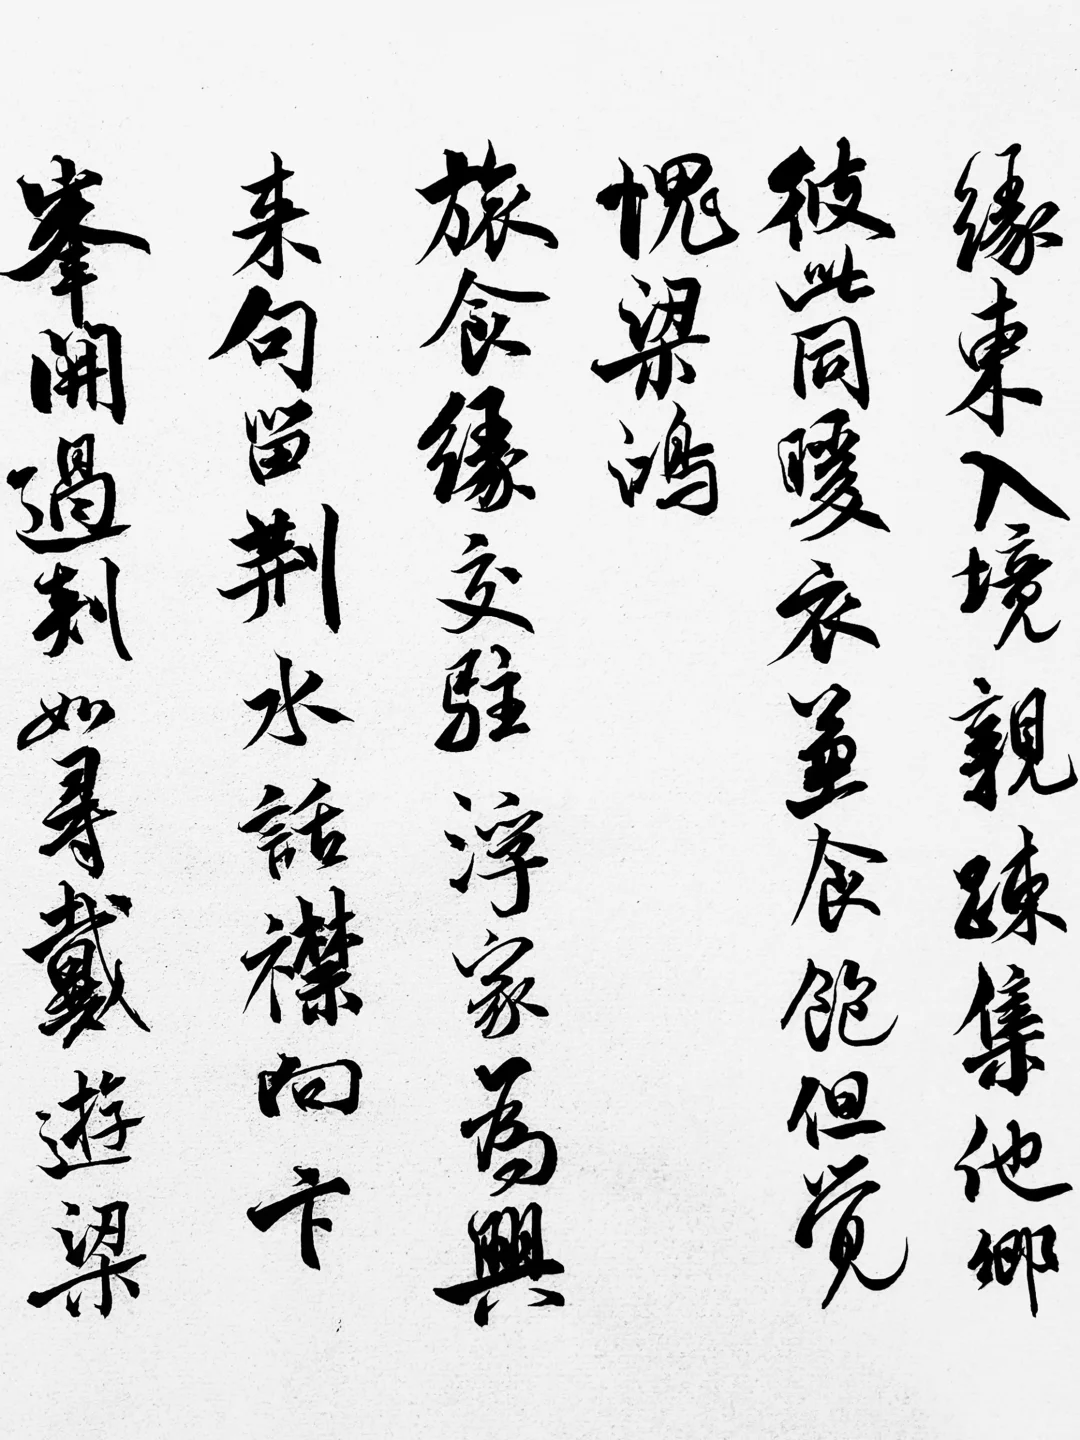 緣東入境親踈集他鄉
彼此同暖衣兼食飽但覺
愧梁鴻
旅食緣交駐浮家為興
来句留荆水話襟向卞
峯開過剡如尋戴遊梁